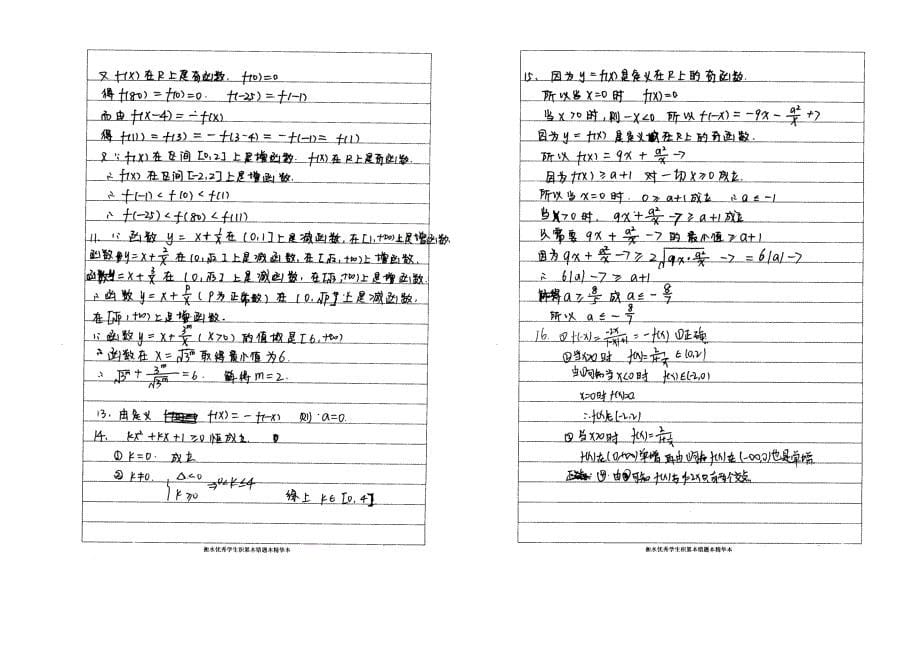 又 f(x) 在R上是奇函数. f(0)=0
得 f(80)=f(0)=0. f(-25)=f(-1)
而由 f(x-4)=-f(x)
得 f(11)=f(3)=-f(3-4)=-f(-1)=f(1)
又∵f(x)在区间[0,2]上是增函数. f(x)在R上是奇函数.
∴f(x)在区间[-2,2]上是增函数.
∴f(-1)<f(0)<f(1)
∴f(-25)<f(80)<f(11)
11. ∵函数 y=x+1/x在(0,1]上是减函数,在[1,+∞)上是增函数.
函数y=x+2/x在(0,√2]上是减函数,在[√2,+∞)上是增函数.
函数y=x+3/x在(0,√3]上是减函数,在[√3,+∞)上是增函数.
∴函数y=x+p/x(p为正常数)在(0,√p]上是减函数,
在[√p,+∞)上是增函数.
∵函数y=x+3^m/x(x>0)的值域是[6,+∞)
∴函数在x=√3^m取得最小值为6.
∴√3^m+3^m/√3^m=6. 解得m=2.
13. 由定义 f(x)=-f(-x) 则 a=0.
14. kx²+kx+1≥0恒成立.
① k=0. 成立
② k≠0. {Δ≤0 k≥0 ⇒0<k≤4
综上 k∈[0,4]
衡水优秀学生积累本错题本精华本
15. 因为y=f(x)是定义在R上的奇函数.
所以当x=0时 f(x)=0
当x>0时,则-x<0 所以f(-x)=-9x-a²/x+7
因为y=f(x)是定义在R上的奇函数.
所以f(x)=9x+a²/x-7
因为f(x)≥a+1对一切x≥0成立
所以当x=0时. 0≥a+1成立 ∴a≤-1
当x>0时. 9x+a²/x-7≥a+1成立
只需要9x+a²/x-7的最小值≥a+1
因为9x+a²/x-7≥2√9x·a²/x-7=6|a|-7
∴6|a|-7≥a+1
解得a≥8/5或a≤-8/7
所以a≤-8/7
16. ①f(-x)=-2x/|-x|+1=-f(x) ①正确
②当x>0时 f(x)=2/1+1/x∈(0,2)
由①知当x<0时 f(x)∈(-2,0)
x=0时f(x)=0
∴f(x)∈(-2,2)
③当x>0时 f(x)=2/1+1/x
f(x)在(0,+∞)单增 再由①知f(x)在(-∞,0)也是单增
衡水优秀学生积累本错题本精华本